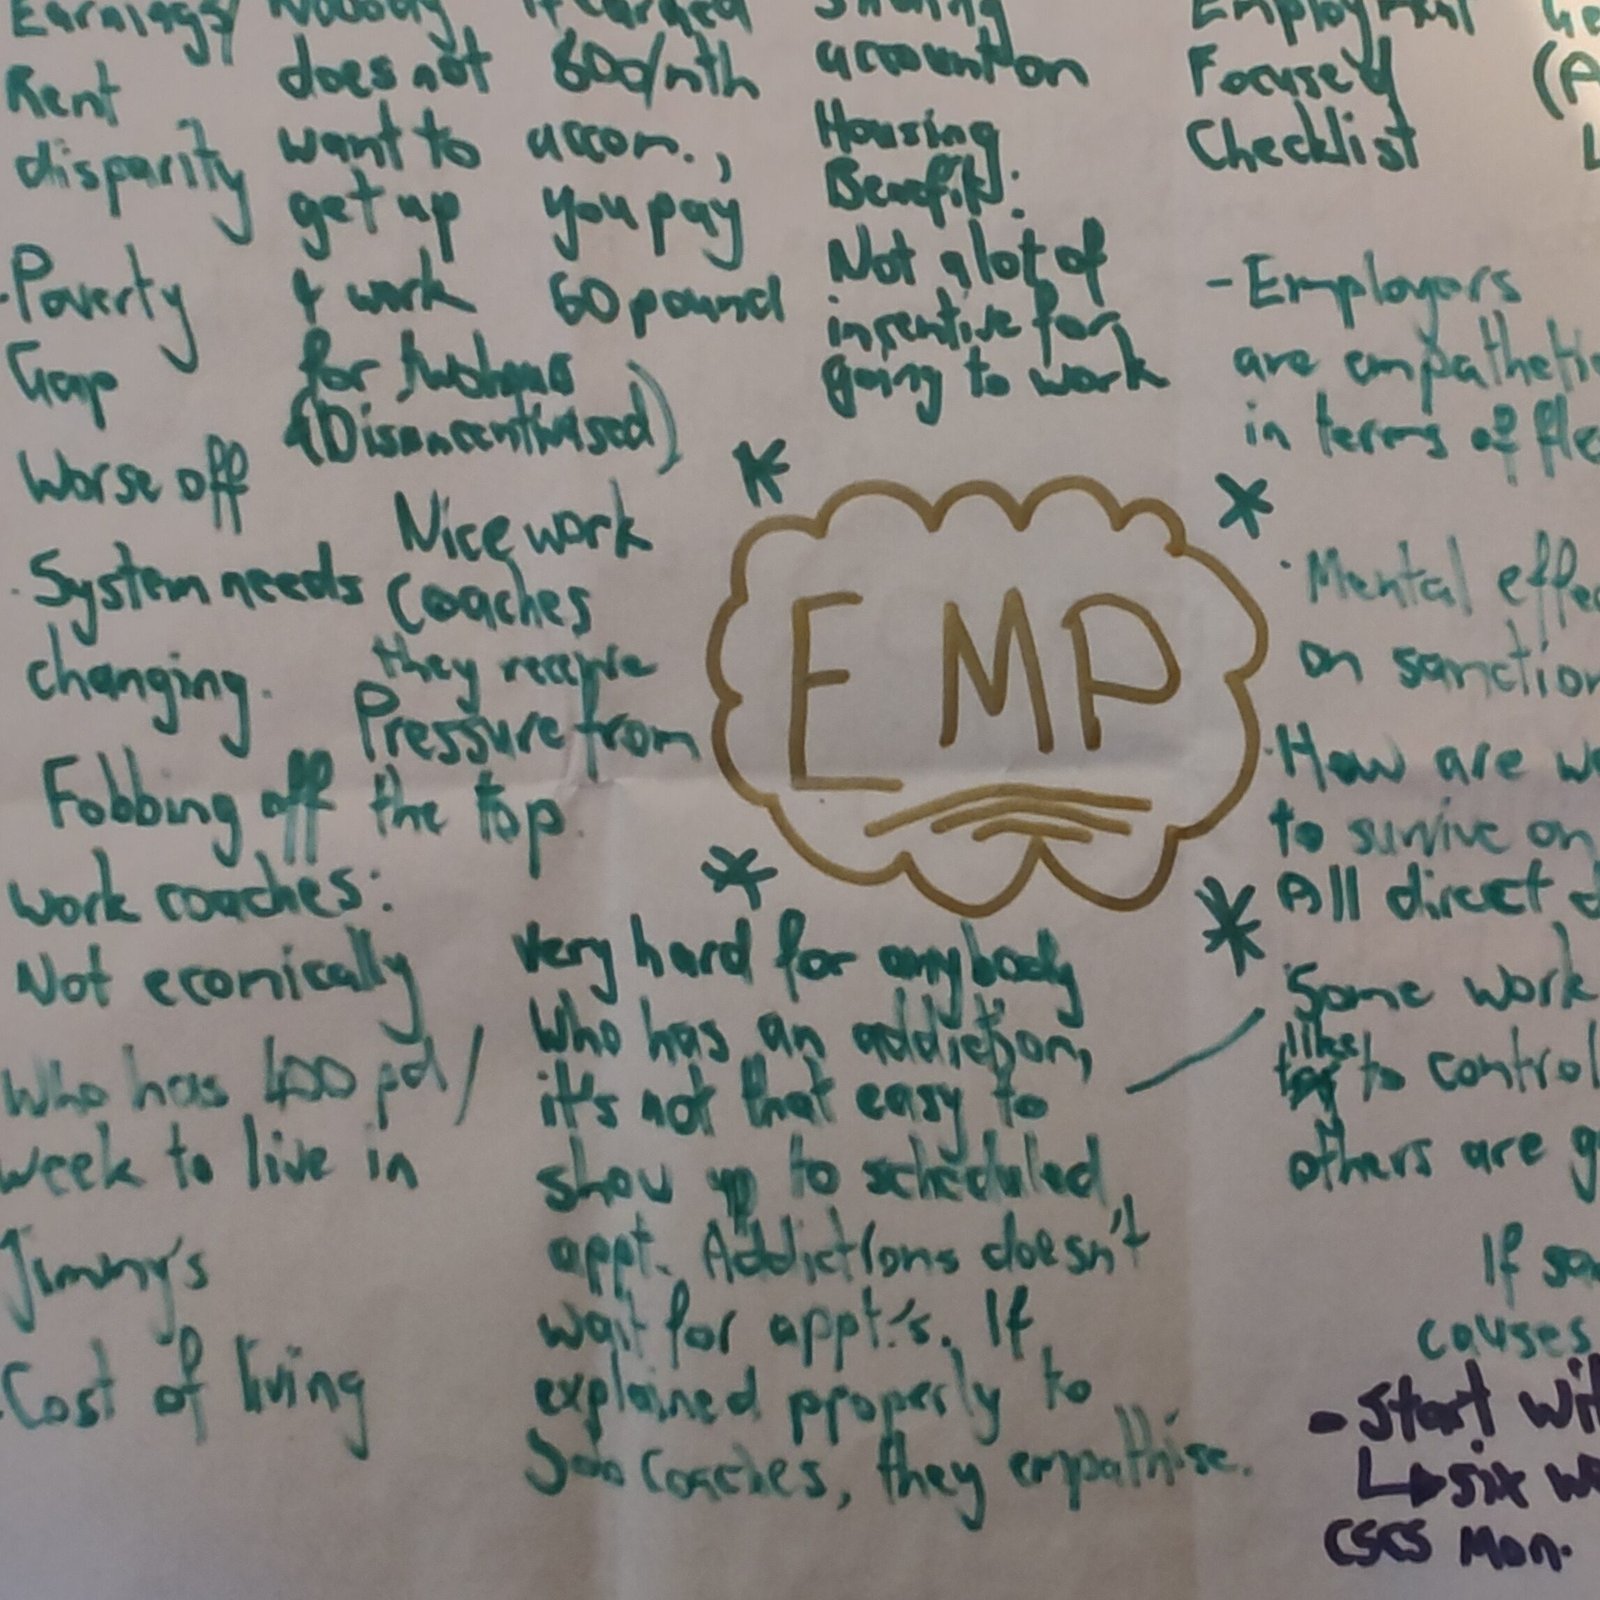 Earnings/
Rent
disparity
-Poverty
Gap
Worse off
. System needs
changing.
Fobbing off
work coaches:
Not ecomically
Who has 400 pd/
week to live in
Jimmy's
.Cost of living
Nobody
does not
want to
get up
& work
for
Nice work
coaches
they receive
Pressure from
the top.
If charged
600/mth
accom.,
you pay
60 pound
account on
Housing
Benefit.
Not a lot of
insentive for
going to work
EMP
very hard for anybody
Who has an addiction,
it's not that easy to
show up to scheduled
appt. Addictions doesn't
wait for appt.'s. If
explained pproperly to
Job Coaches, they empathise.
Employment
Focused
Checklist
- Employers
are empathetic
in terms of fle
. Mental effec
on sanction
.How are we
to survive on
All direct d
Some work
like to control
others are g
If sa
causes
- Start wit
six we
CSCS Mon.
(A
L